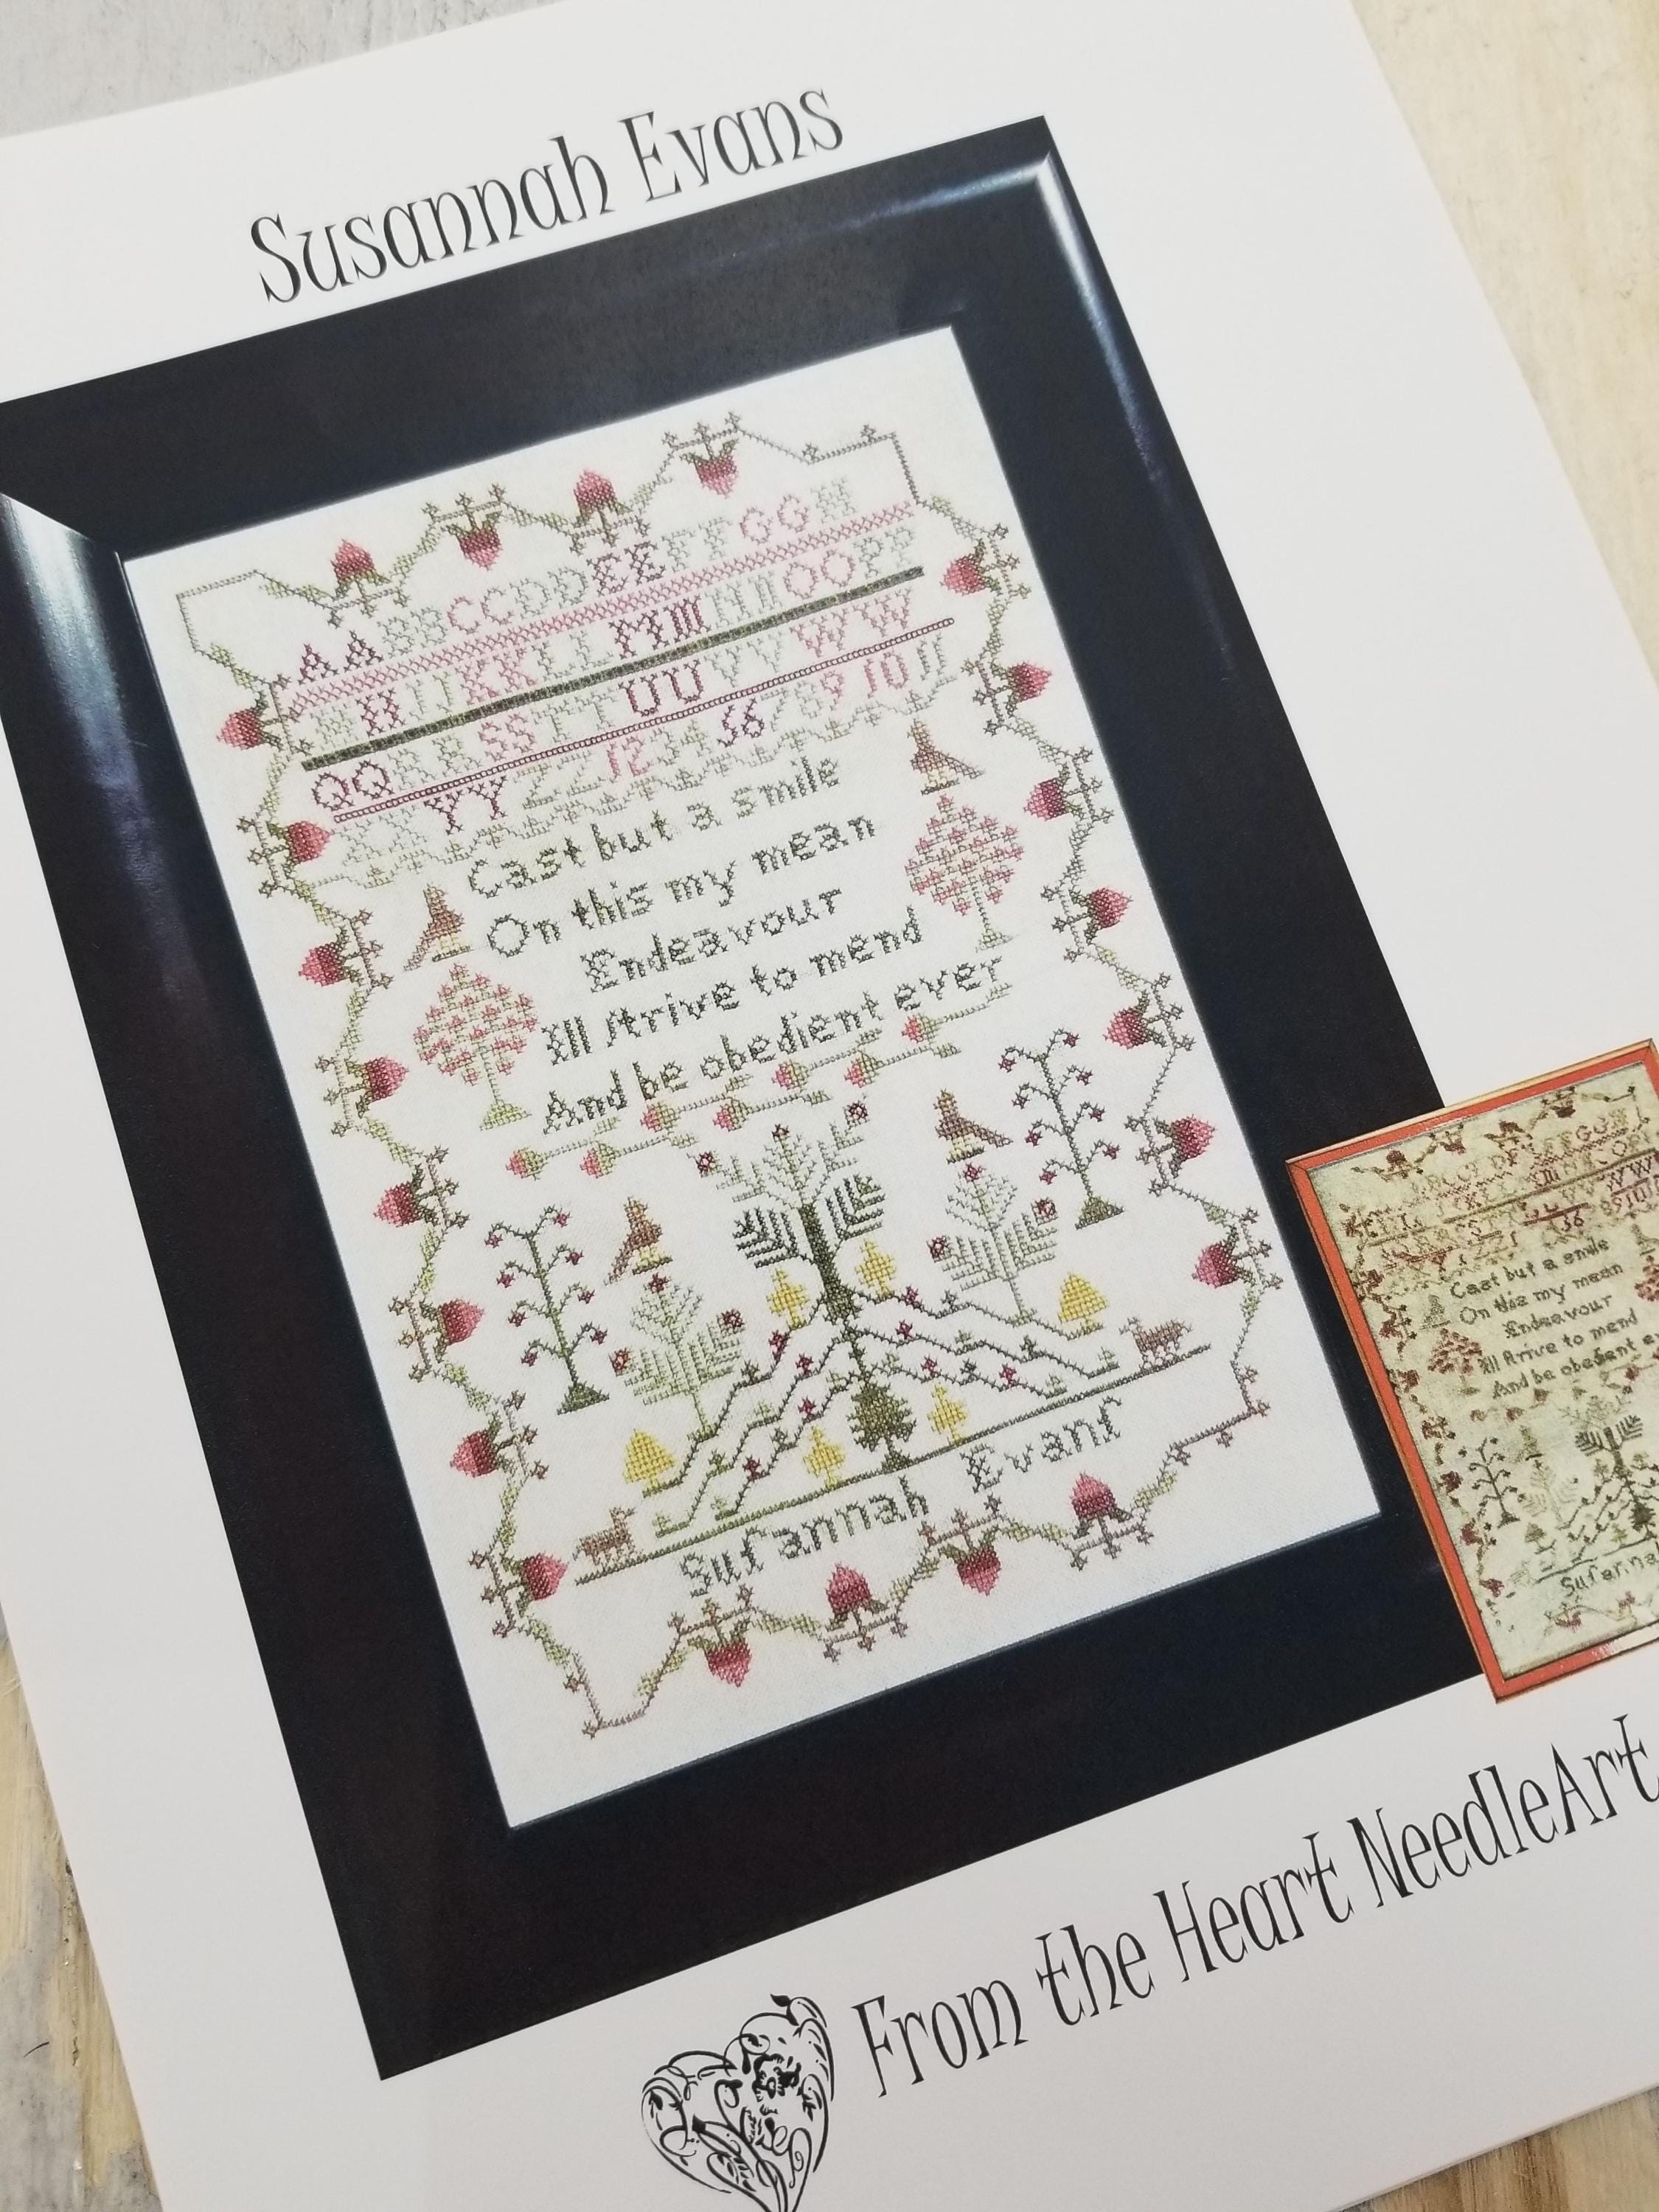 Susannah Evans
AABBCCDDEEFFGGH
HIJKKLLMMNNOOPP
QQRRSSTTUUVVWW
YYZZ1234567891011
Cast but a smile
On this my mean
Endeavour
Ill ſtrive to mend
And be obedient ever
Suſannah Evanſ
Cast but a smile
On this my mean
Endeavour
Ill ſtrive to mend
And be obedient
From the Heart NeedleArt